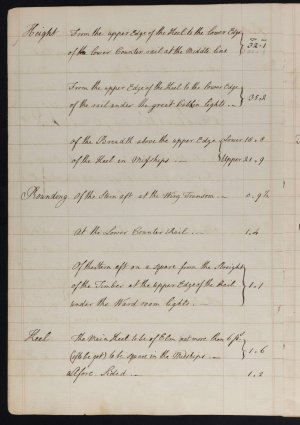 Height From the upper Edge of the Keel to the lower Edge
of the lower Counter rail at the Middle line 32-1
From the upper Edge of the Keel to the lower Edge
of the rail under the great Cabbin lights 35-2
of the Breadth above the upper Edge Lower 18-8
of the Keel in Midships Upper 21-9
Rounding Of the Stern aft at the Wing Transom 0-9½
At the Lower Counter Rail 1.4
Of the Stern aft on a square from the Straight
of the Timber at the upper Edge of the Rail 1-1
under the Ward room lights
Keel The Main Keel to be of Elm not more than 6 ps
(if to be got) to be square in the Midships 1-6
Afore Sided 1-2